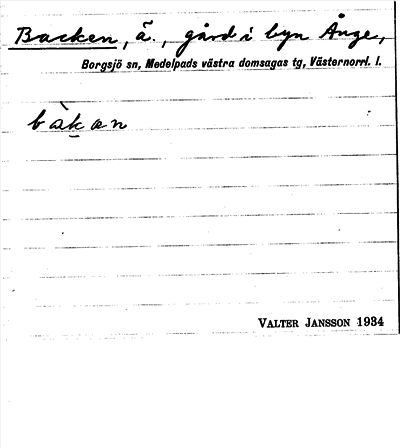 Backen, ä., gård i byn Ånge,
Borgsjö sn, Medelpads västra domsagas tg, Västernorrl. l.
bàkan
VALTER JANSSON 1934